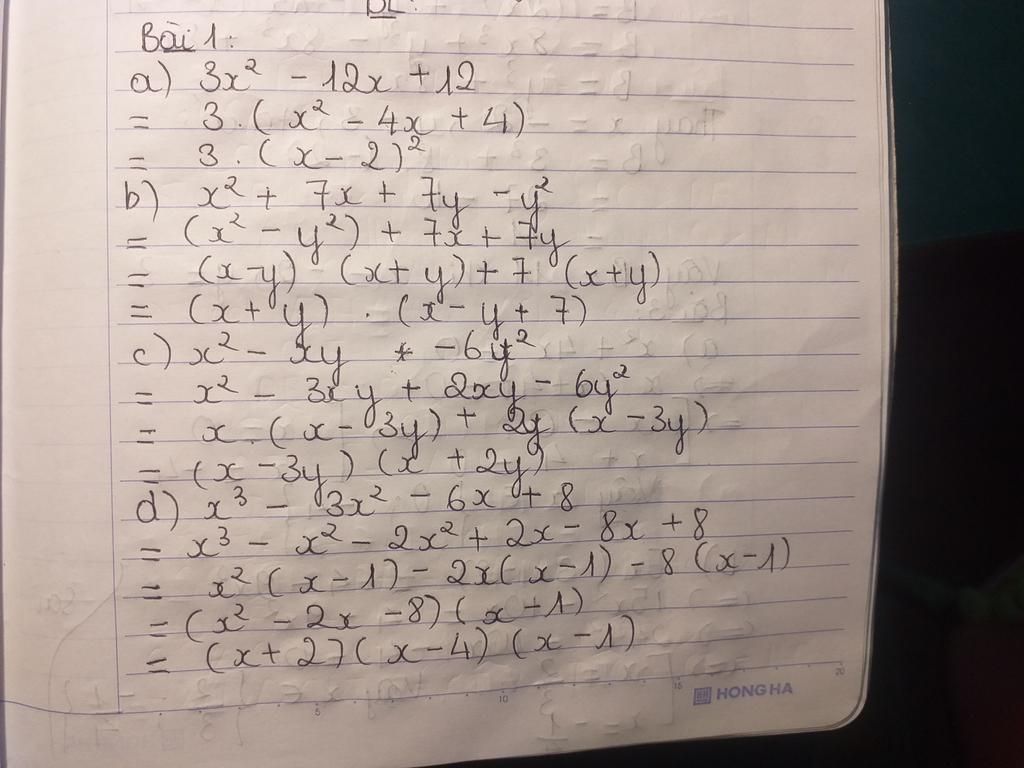 Bài 1:
a) 3x² - 12x + 12
= 3.(x² - 4x + 4)
= 3.(x - 2)²
b) x² + 7x + 7y - y²
= (x² - y²) + 7x + 7y
= (x-y) (x+y) + 7 (x+y)
= (x+y) . (x - y + 7)
c) x² - xy - 6y²
= x² - 3xy + 2xy - 6y²
= x.(x - 3y) + 2y (x - 3y)
= (x - 3y) (x + 2y)
d) x³ - 3x² - 6x + 8
= x³ - x² - 2x² + 2x - 8x + 8
= x² (x - 1) - 2x(x - 1) - 8 (x - 1)
= (x² - 2x - 8) (x - 1)
= (x + 2)(x - 4) (x - 1)
5 10 15 20
HONG HA